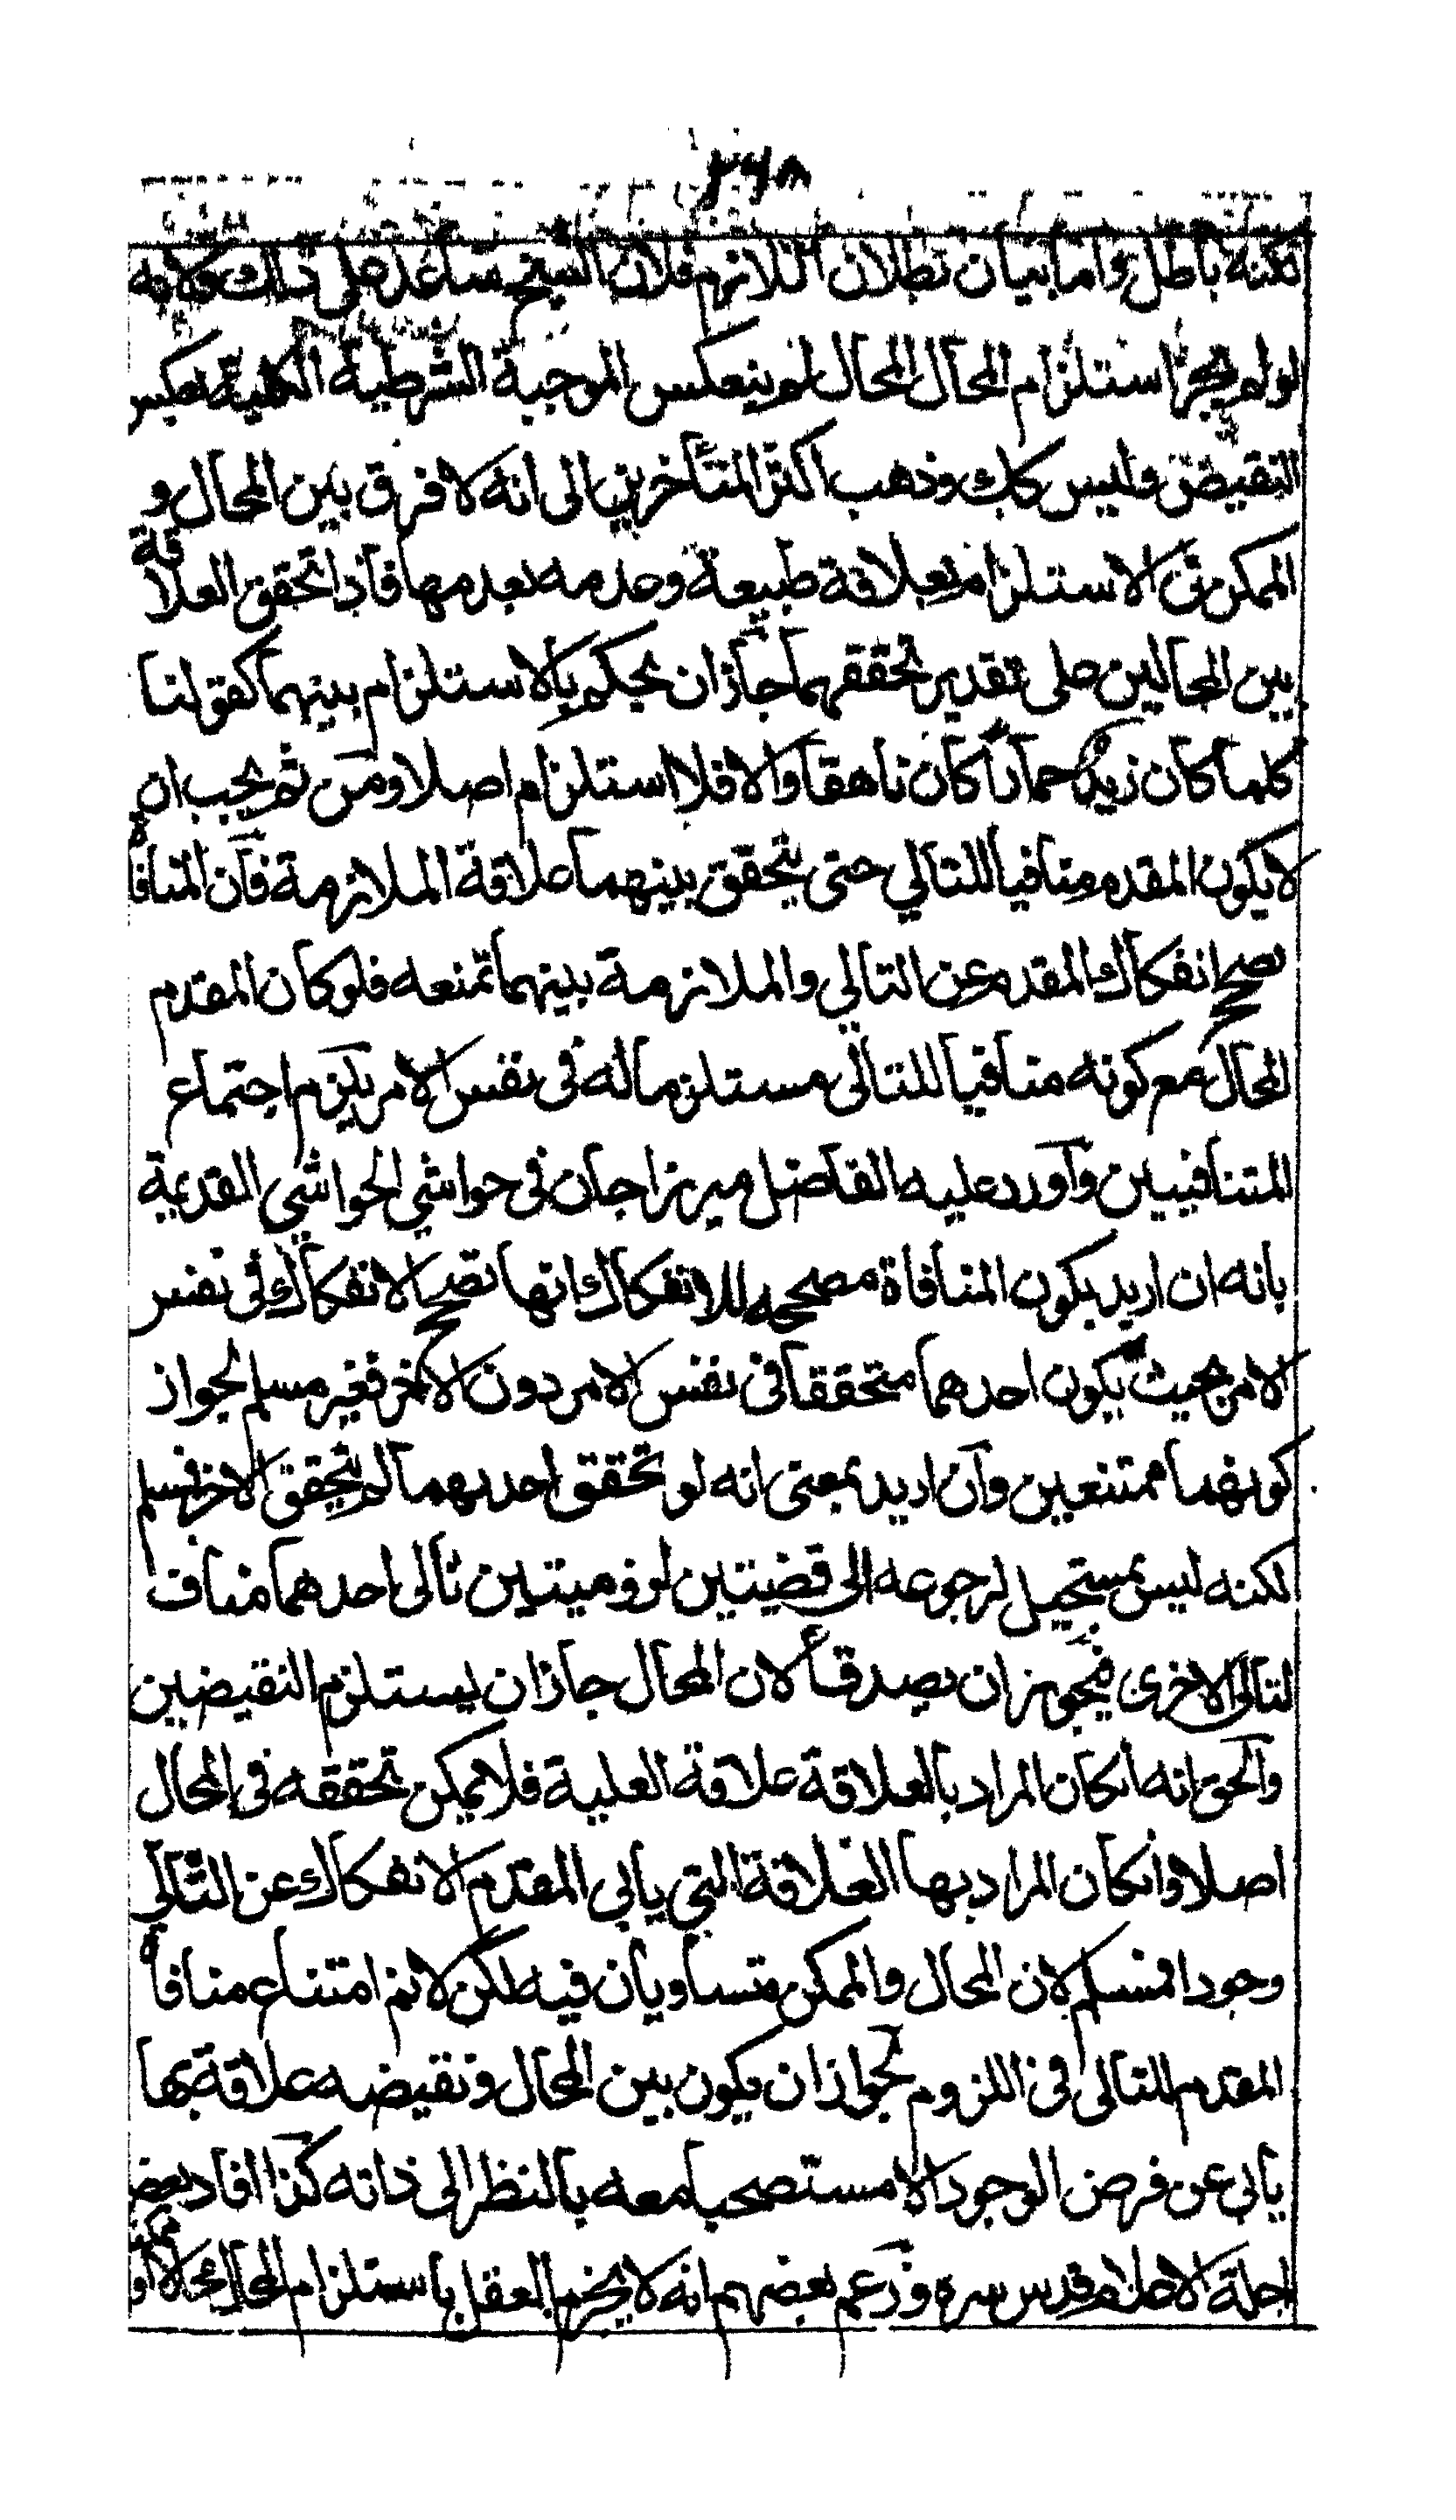 ٢٦٨
لكنه باطل واما بيان بطلان اللازم فلان الشيخ ساعد على ذلك
لو لم يجز استلزام المحال المحال لم ينعكس الموجبة الشرطية الكلية بعكس
النقيض وليس كك وذهب اكثر المتأخرين الى انه لا فرق بين المحال و
الممكن في الاستلزام بعلاقة طبيعة وعدمه بعدمها فاذا تحقق العلاقة
بين المحالين على تقدير تحققهما جاز ان يحكم بالاستلزام بينهما كقولنا
كلما كان زيد حمارا كان ناهقا والا فلا استلزام اصلا ومن ثم يجب ان
لا يكون المقدم منافيا للتالي حتى يتحقق بينهما علاقة الملازمة فان المنافاة
تصحح انفكاك المقدم عن التالي والملازمة بينهما تمنعه فلو كان المقدم
المحال مع كونه منافيا للتالى مستلزما له فى نفس الامر يلزم اجتماع
المتنافيين واورد عليه الفاضل ميرزا جان فى حواشي الحواشي القديمة
بانه ان اريد بكون المنافاة مصححه للانفكاك انها تصحح الانفكاك فى نفس
الامر بحيث يكون احدهما متحققا فى نفس الامر دون الآخر فغير مسلم لجواز
كونهما ممتنعين وان اريد بمعنى انه لو تحقق احدهما لم يتحقق الاخر فمسلم
لكنه ليس بمستحيل لرجوعه الى قضيتين لزوميتين تالى احدهما مناف
لتالى الاخرى فيجوز ان يصدقا لان المحال جاز ان يستلزم النقيضين
والحق انه انكان المراد بالعلاقة علاقة العلية فلا يمكن تحققه فى المحال
اصلا وانكان المراد بها العلاقة التي يابى المقدم الانفكاك عن التالي
وجودا فمسلم لان المحال والممكن متساويان فيه لكن لا نم امتناع منافاة
المقدم للتالى فى اللزوم لجواز ان يكون بين المحال ونقيضه علاقة بها
يابى عن فرض الوجود الا مستصحبا معه بالنظر الى ذاته كذا افاد بعض
اجلة الاعلام قدس سره وزعم بعضهم انه لا يجزم العقل باستلزام المحال محالا او ممكنا